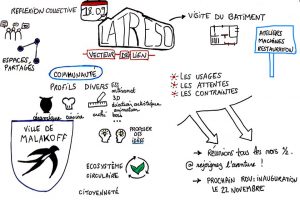 REFLEXION COLLECTIVE
18.09
LA TRESO
VECTEUR DE LIEN
VISITE DU BATIMENT
ATELIERS
MACHINES
RESTAURATION
ESPACES
PARTAGÉS
COMMUNAUTÉ
PROFILS DIVERS
artisanat
3D
animation
bois
céramique
cuisine
PROPOSER
DES
IDÉES
* LES USAGES
* LES ATTENTES
* LES CONTRAINTES
VILLE DE
MALAKOFF
ECOSYSTÈME
CIRCULAIRE
CITOYENNETÉ
→ Réunions tous les mois 1/2.
@ rejoignez l'aventure !
→ PROCHAIN RDV: INAUGURATION
LE 22 NOVEMBRE